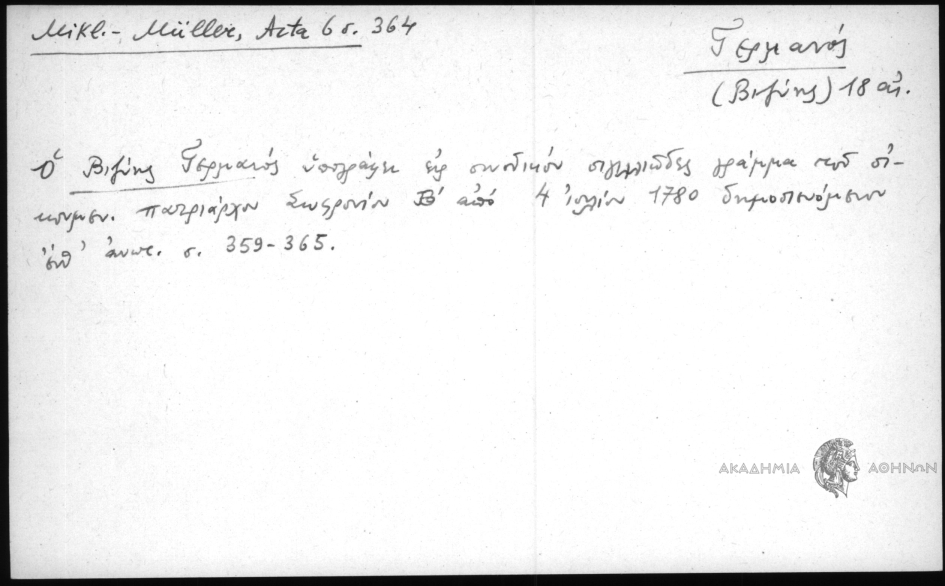 Mikl.- Müller, Acta 6 σ. 364
Γερμανός
(Βιζύης) 18 αἰ.
Ὁ Βιζύης Γερμανός ὑπογράφει εἰς συνοδικόν σιγιλλιῶδες γράμμα τοῦ οἰ-
κουμεν. πατριάρχου Σωφρονίου Β' ἀπό 4 ἰουλίου 1780 δημοσιευόμενον
ἐνθ' ἀνωτ. σ. 359-365.
ΑΚΑΔΗΜΙΑ ΑΘΗΝΩΝ